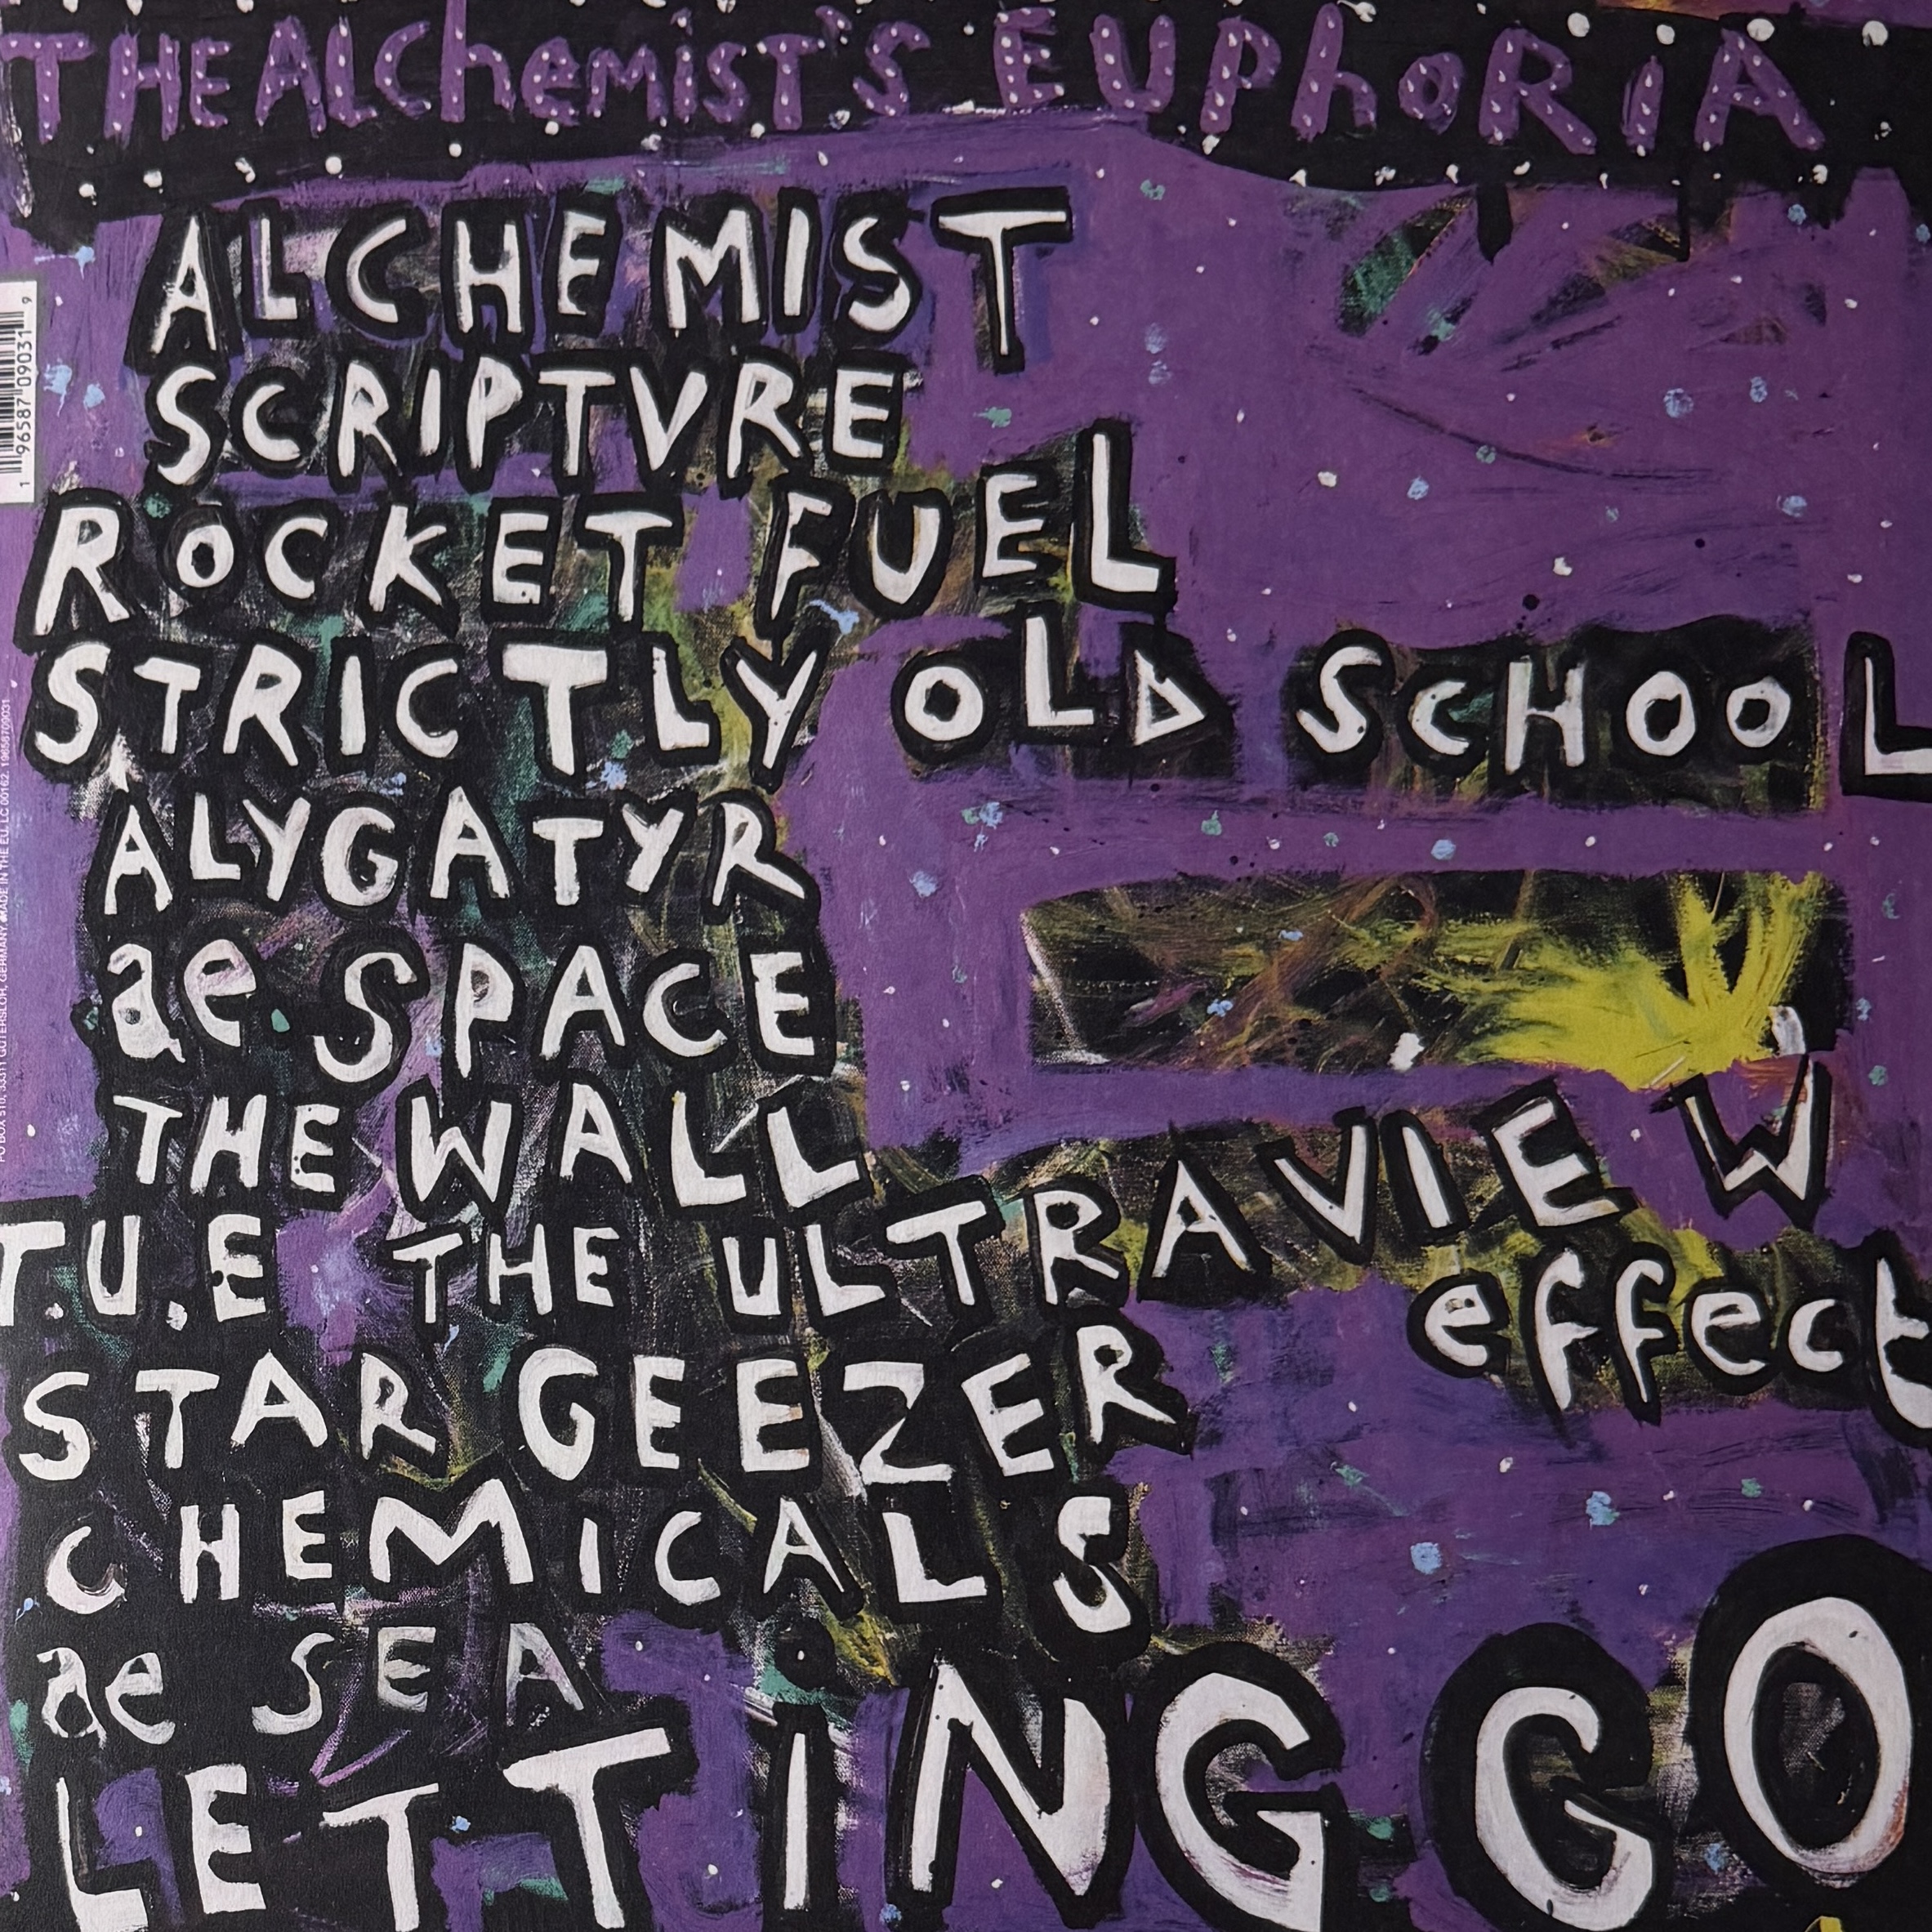 THE ALChemist'S EUPhoRiA
ALCHEMIST
SCRIPTVRE
ROCKET FUEL
STRICTLY OLD SCHOOL
ALYGATYR
ae SPACE
THE WALL
T.U.E THE ULTRAVIEW
effect
STAR GEEZER
CHEMICALS
ae SEA
LETTING GO
1 96587 09031 9
PO BOX 510, 33311 GÜTERSLOH, GERMANY. MADE IN THE EU. LC 00162. 19658709031